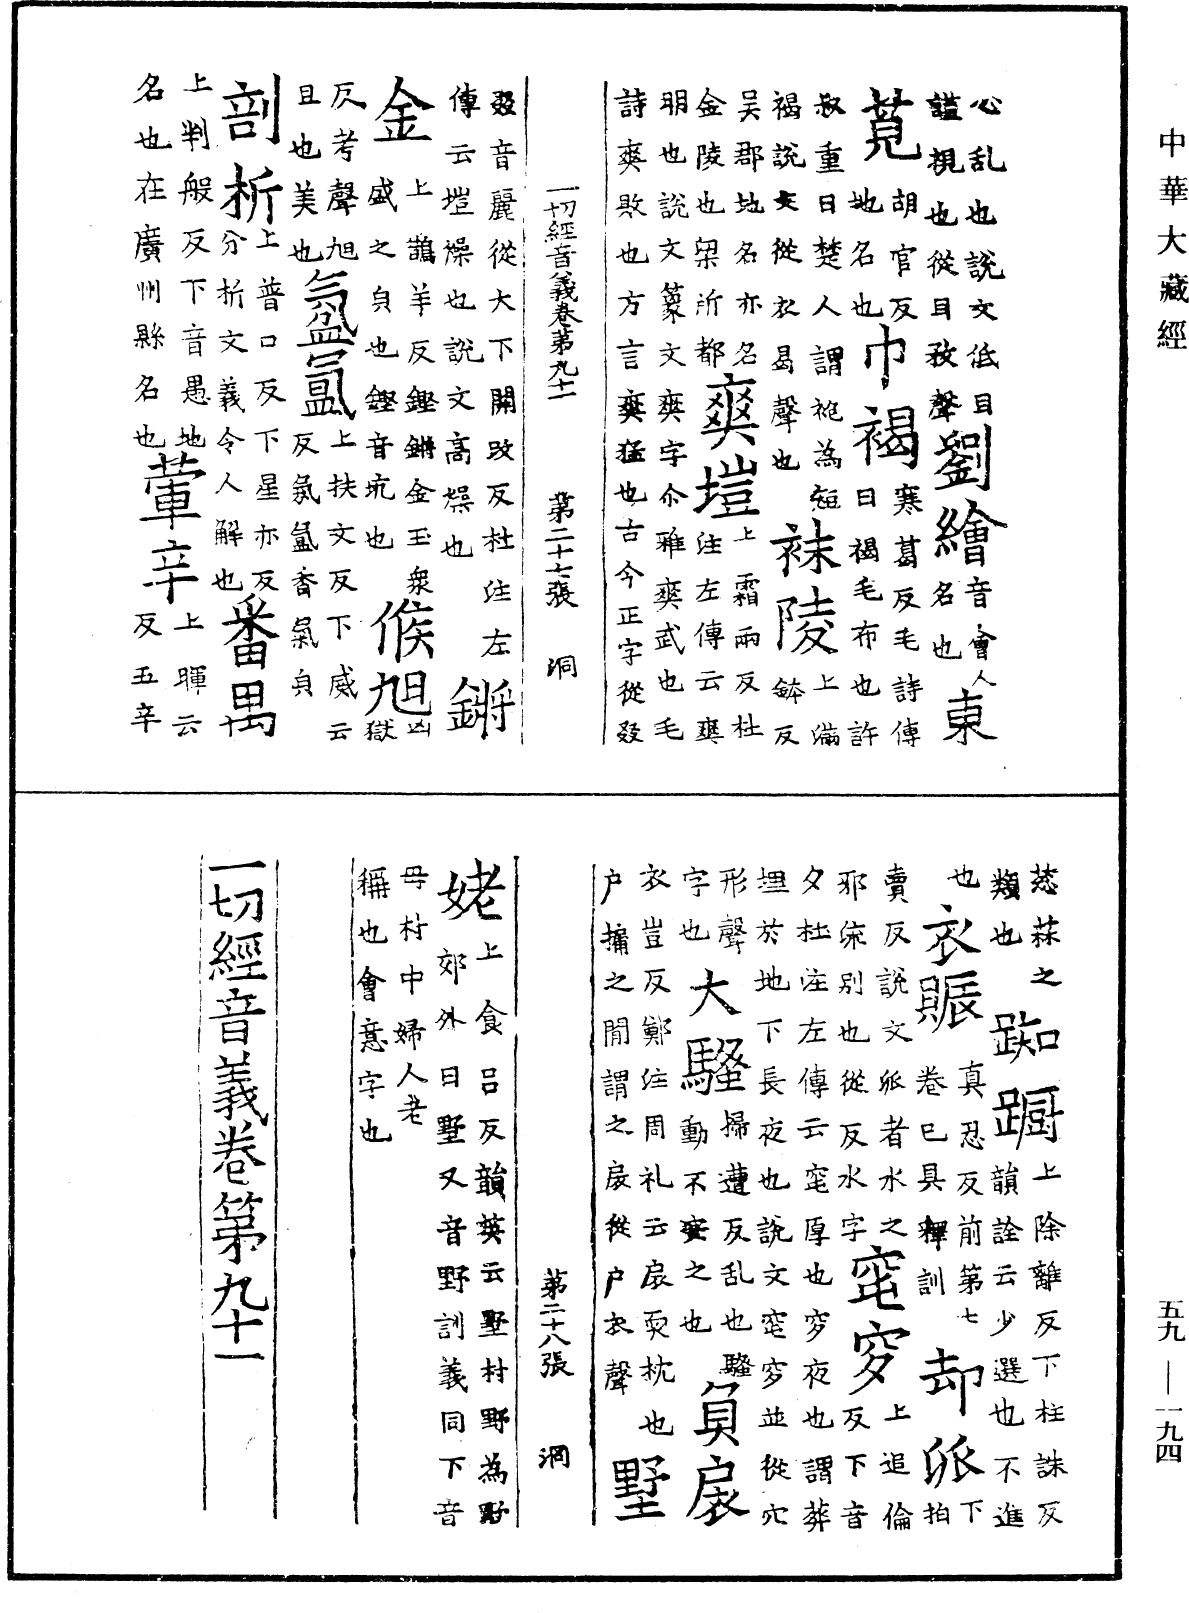 中華大藏經
心乱也說文低目
謹視也從目敄聲劉繪音會人名也東
莧胡官反地名也巾褐寒葛反毛詩傳曰褐毛布也許
叔重曰楚人謂袍為裋
褐說文從衣曷聲也袜陵上滿鉢反
吴郡地名亦名
金陵也梁所都爽塏上霜兩反杜注左傳云爽
明也說文篆文爽字尒雅爽武也毛
詩爽敗也方言爽猛也古今正字從㸚
一切經音義卷第九十一 第二十七張 洞
㸚音麗從大下開改反杜注左
傳云塏燥也說文高燥也鏘
金上鵲羊反鏗鏘金玉衆盛之皃也鏗音坑也候旭凶獄
反考聲旭
且也美也氳氤上扶文反下威云反氛氳香氣皃
剖析上普口反下星亦反分析文義令人解也番禺
上判般反下音愚地
名也在廣州縣名也葷辛上暉云反五辛
葱蒜之
類也踟蹰上除離反下柱誅反韻詮云少選也不進
也衣賑真忍反前第七卷已具釋訓却派下拍
賣反說文𠂢者水之
邪流別也從反水字窀穸上追倫反下音
夕杜注左傳云窀厚也穸夜也謂葬
埋於地下長夜也說文窀穸並從穴
形聲字也大騷掃遭反乱也騷動不安之也負扆
衣豈反鄭注周礼云扆耎枕也
户牖之間謂之扆從户衣聲墅
第二十八張 洞
姥上食吕反韻英云墅村野為墅
郊外曰墅又音野訓義同下音
母村中婦人老
稱也會意字也
一切經音義卷第九十一
五九—一九四